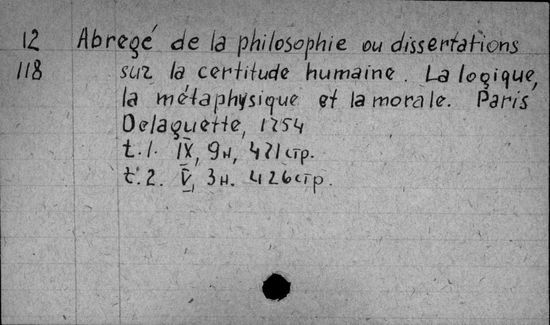 12 Abregé de la philosophie ou dissertations
118 sur la certitude humaine. La logique,
la métaphysique et la morale. Paris
Delaguette, 1754
t.1. IX, 9н, 471 стр.
t.2. V, 3н. 426 стр.